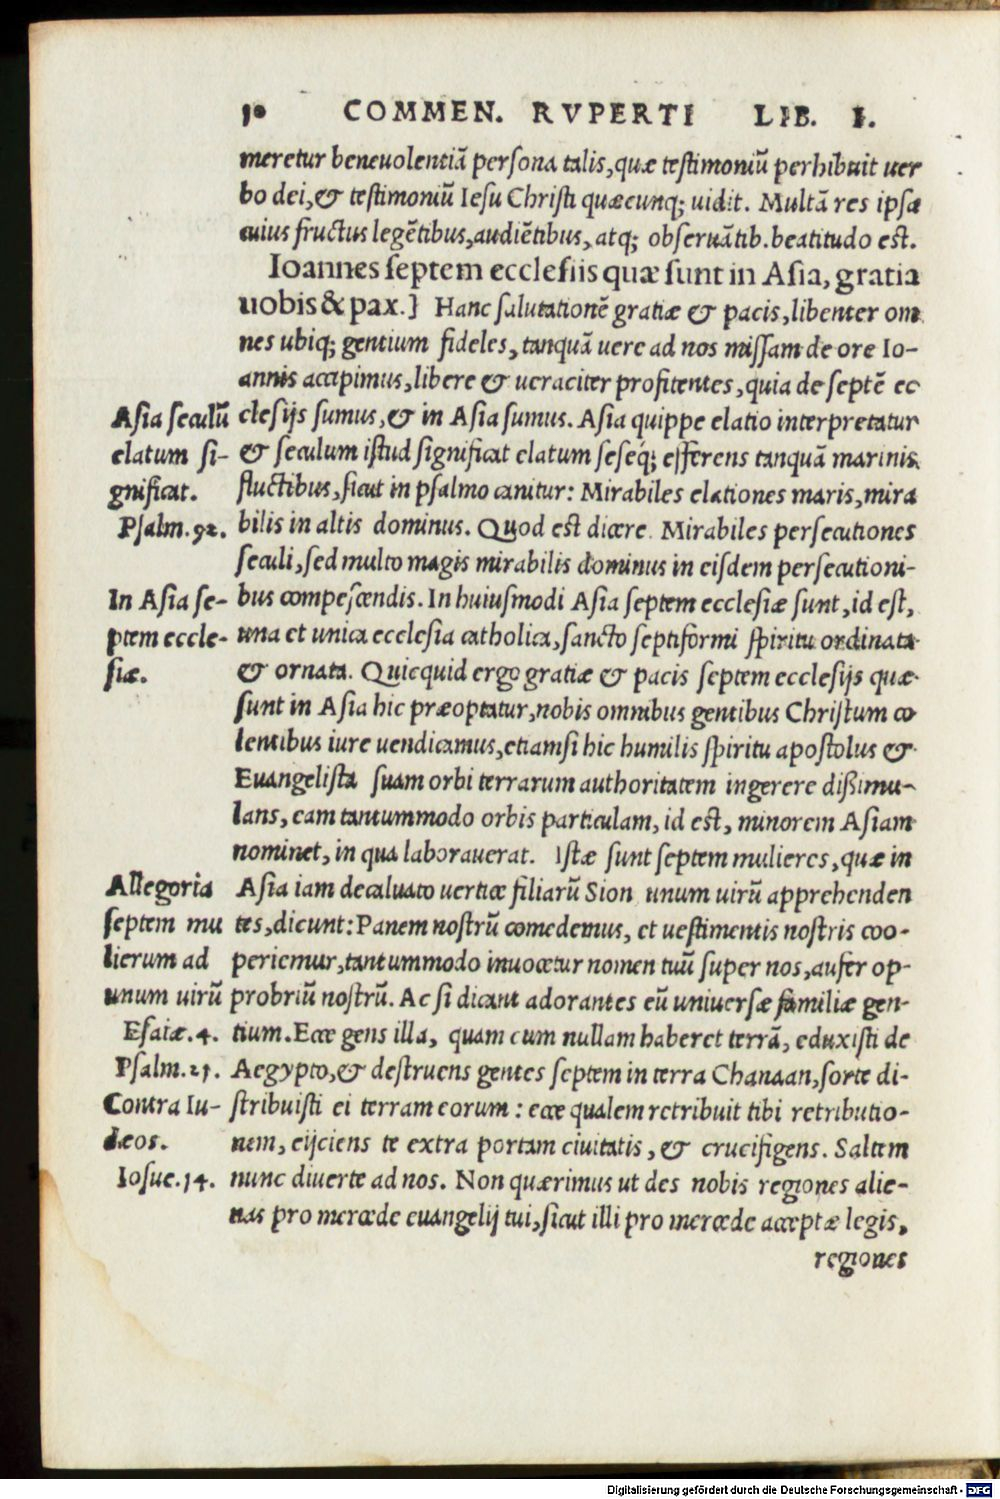 10 COMMEN. RVPERTI LIB. I.
meretur beneuolentiā persona talis, quæ testimoniū perhibuit uer
bo dei, & testimoniū Iesu Christi quæcunq; uidit. Multā res ipsa
cuius fructus legētibus, audiētibus, atq; obseruātib. beatitudo est.
Ioannes septem ecclesiis quæ sunt in Asia, gratia
uobis & pax.] Hanc salutationē gratiæ & pacis, libenter om
nes ubiq; gentium fideles, tanquā uere ad nos missam de ore Io-
annis accipimus, libere & ueraciter profitentes, quia de septē ec
clesijs sumus, & in Asia sumus. Asia quippe elatio interpretatur
& seculum istud significat elatum seséq; efferens tanquā marinis
fluctibus, sicut in psalmo canitur: Mirabiles elationes maris, mira
bilis in altis dominus. Quod est dicere. Mirabiles persecutiones
seculi, sed multo magis mirabilis dominus in eisdem persecutioni-
bus compescendis. In huiusmodi Asia septem ecclesiæ sunt, id est,
una et unica ecclesia catholica, sancto septiformi spiritu ordinata
& ornata. Quicquid ergo gratiæ & pacis septem ecclesijs quæ
sunt in Asia hic præoptatur, nobis omnibus gentibus Christum co
lentibus iure uendicamus, etiamsi hic humilis spiritu apostolus &
Euangelista suam orbi terrarum authoritatem ingerere dißimu-
lans, eam tantummodo orbis particulam, id est, minorem Asiam
nominet, in qua laborauerat. Istæ sunt septem mulieres, quæ in
Asia iam decaluato uertice filiarū Sion unum uirū apprehenden
tes, dicunt: Panem nostrū comedemus, et uestimentis nostris coo-
periemur, tantummodo inuocetur nomen tuū super nos, aufer op-
probriū nostrū. Ac si dicant adorantes eū uniuersæ familiæ gen-
tium. Ecce gens illa, quam cum nullam haberet terrā, eduxisti de
Aegypto, & destruens gentes septem in terra Chanaan, sorte di-
stribuisti ei terram eorum: ecce qualem retribuit tibi retributio-
nem, eijciens te extra portam ciuitatis, & crucifigens. Saltem
nunc diuerte ad nos. Non quærimus ut des nobis regiones alie-
nas pro mercede euangelij tui, sicut illi pro mercede acceptæ legis,
regiones
Asia seculū
elatum si-
gnificat.
Psalm.92.
In Asia se-
ptem eccle-
siæ.
Allegoria
septem mu
lierum ad
unum uirū
Esaiæ.4.
Psalm.21.
Contra Iu-
dæos.
Iosue.14.
Digitalisierung gefördert durch die Deutsche Forschungsgemeinschaft - DFG